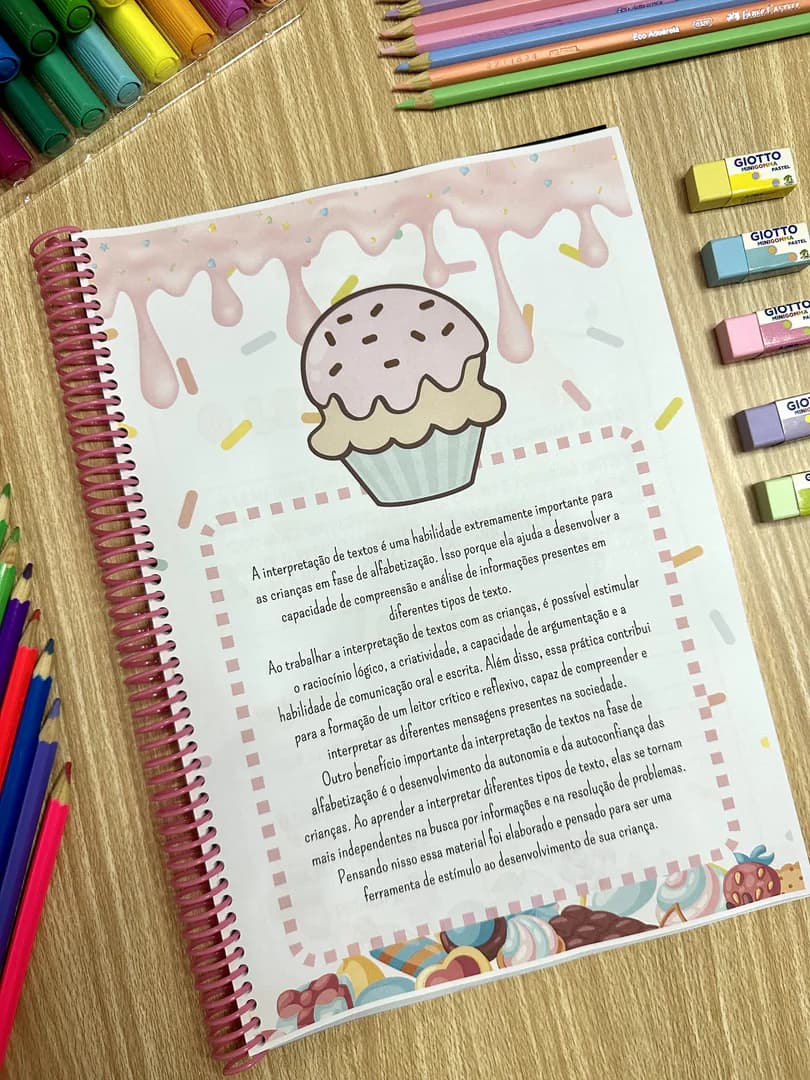 Eco Aquarela
FABER-CASTELL
GIOTTO
MINIGOMMA
PASTEL
GIOTTO
MINIGOMMA
GIOTTO
MINIGOMMA
GIOTTO
A interpretação de textos é uma habilidade extremamente importante para
as crianças em fase de alfabetização. Isso porque ela ajuda a desenvolver a
capacidade de compreensão e análise de informações presentes em
diferentes tipos de texto.
Ao trabalhar a interpretação de textos com as crianças, é possível estimular
o raciocínio lógico, a criatividade, a capacidade de argumentação e a
habilidade de comunicação oral e escrita. Além disso, essa prática contribui
para a formação de um leitor crítico e reflexivo, capaz de compreender e
interpretar as diferentes mensagens presentes na sociedade.
Outro benefício importante da interpretação de textos na fase de
alfabetização é o desenvolvimento da autonomia e da autoconfiança das
crianças. Ao aprender a interpretar diferentes tipos de texto, elas se tornam
mais independentes na busca por informações e na resolução de problemas.
Pensando nisso essa material foi elaborado e pensado para ser uma
ferramenta de estímulo ao desenvolvimento de sua criança.